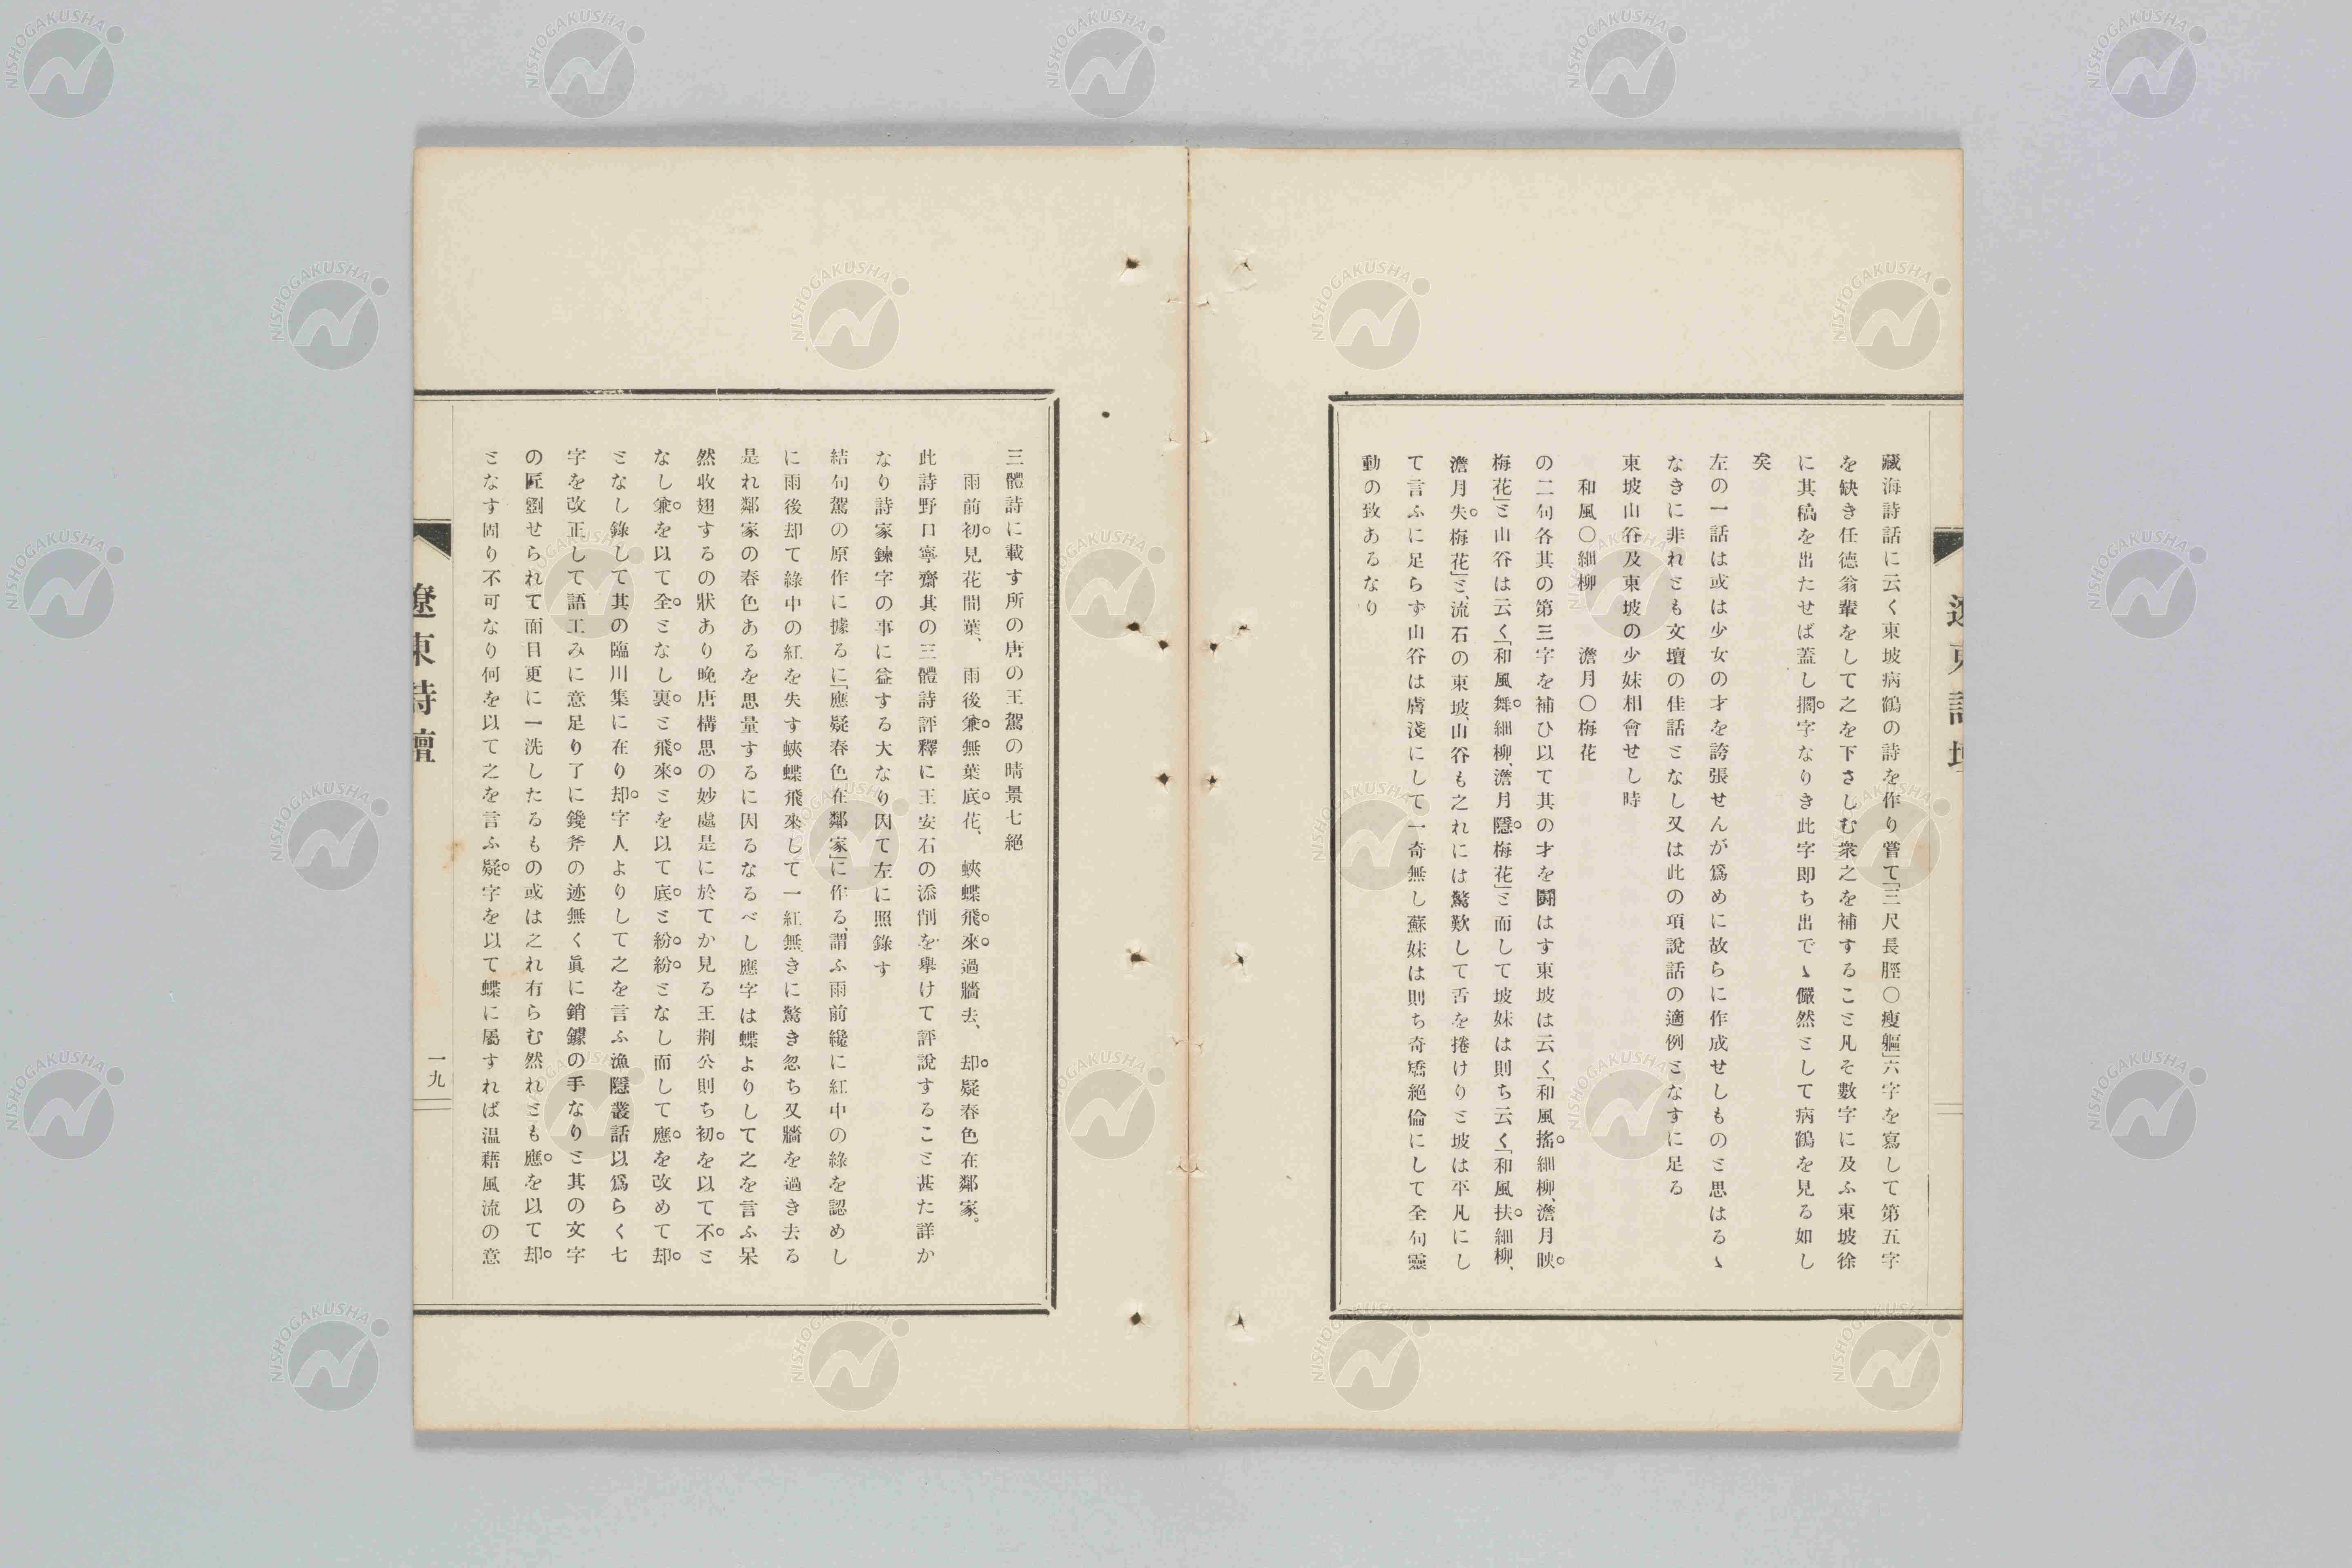 藏海詩話に云く東坡病鶴の詩を作り嘗て「三尺長脛〇瘦軀」六字を寫して第五字
を缺き任德翁輩をして之を下さしむ衆之を補することと凡そ數字に及ふ東坡徐
に其稿を出たせば蓋し擱字なりき此字即ち出でゝ儼然として病鶴を見る如し
矣
左の一話は或は少女の才を誇張せんが爲めに故らに作成せしものと思はるゝ
なきに非れとも文壇の佳話となし又は此の項說話の適例となすに足る
東坡山谷及東坡の少妹相會せし時
和風〇細柳　澹月〇梅花
の二句各其の第三字を補ひ以て其の才を鬪はす東坡は云く「和風搖細柳、澹月映
梅花」と山谷は云く「和風舞細柳、澹月隱梅花」と而して坡妹は則ち云く「和風扶細柳、
澹月失梅花」と、流石の東坡、山谷も之れには驚歎して舌を捲けりと坡は平凡にし
て言ふに足らす山谷は膚淺にして一奇無し蘇妹は則ち奇矯絕倫にして全句靈
動の致あるなり
三體詩に載す所の唐の王駕の晴景七絕
雨前初見花間葉、雨後兼無葉底花、蛺蝶飛來過牆去、却疑春色在鄰家。
此詩野口寧齋其の三體詩評釋に王安石の添削を擧けて評說することと甚た詳か
なり詩家鍊字の事に益する大なり因て左に照錄す
結句駕の原作に據るに「應疑春色在鄰家」に作る、謂ふ雨前纔に紅中の綠を認めし
に雨後却て綠中の紅を失す蛺蝶飛來して一紅無きに驚き忽ち又牆を過き去る
是れ鄰家の春色あるを思量するに因るなるべし應字は蝶よりして之を言ふ呆
然收翅するの狀あり晚唐構思の妙處是に於てか見る王荆公則ち初を以て不と
なし兼を以て全となし裏と飛來とを以て底と紛紛となし而して應を改めて却
となし錄して其の臨川集に在り却字人よりして之を言ふ漁隱叢話以爲らく七
字を改正して語工みに意足り了に鑱斧の迹無く眞に銷鑠の手なりと其の文字
の匠劉せられて面目更に一洗したるもの或は之れ有らむ然れとも應を以て却
となす固り不可なり何を以て之を言ふ疑字を以て蝶に屬すれば温藉風流の意
遼東詩壇
一九